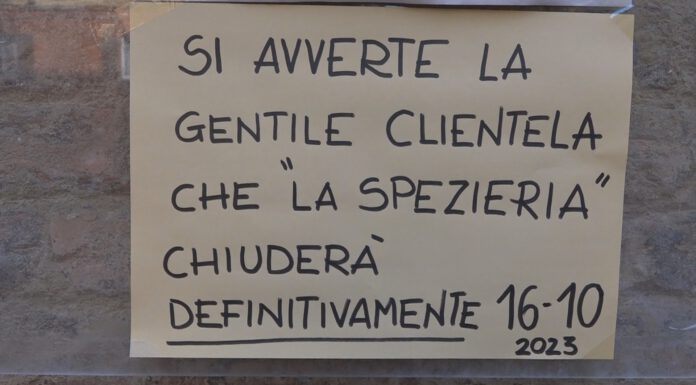 SI AVVERTE LA
GENTILE CLIENTELA
CHE "LA SPEZIERIA"
CHIUDERÀ
DEFINITIVAMENTE 16-10
2023